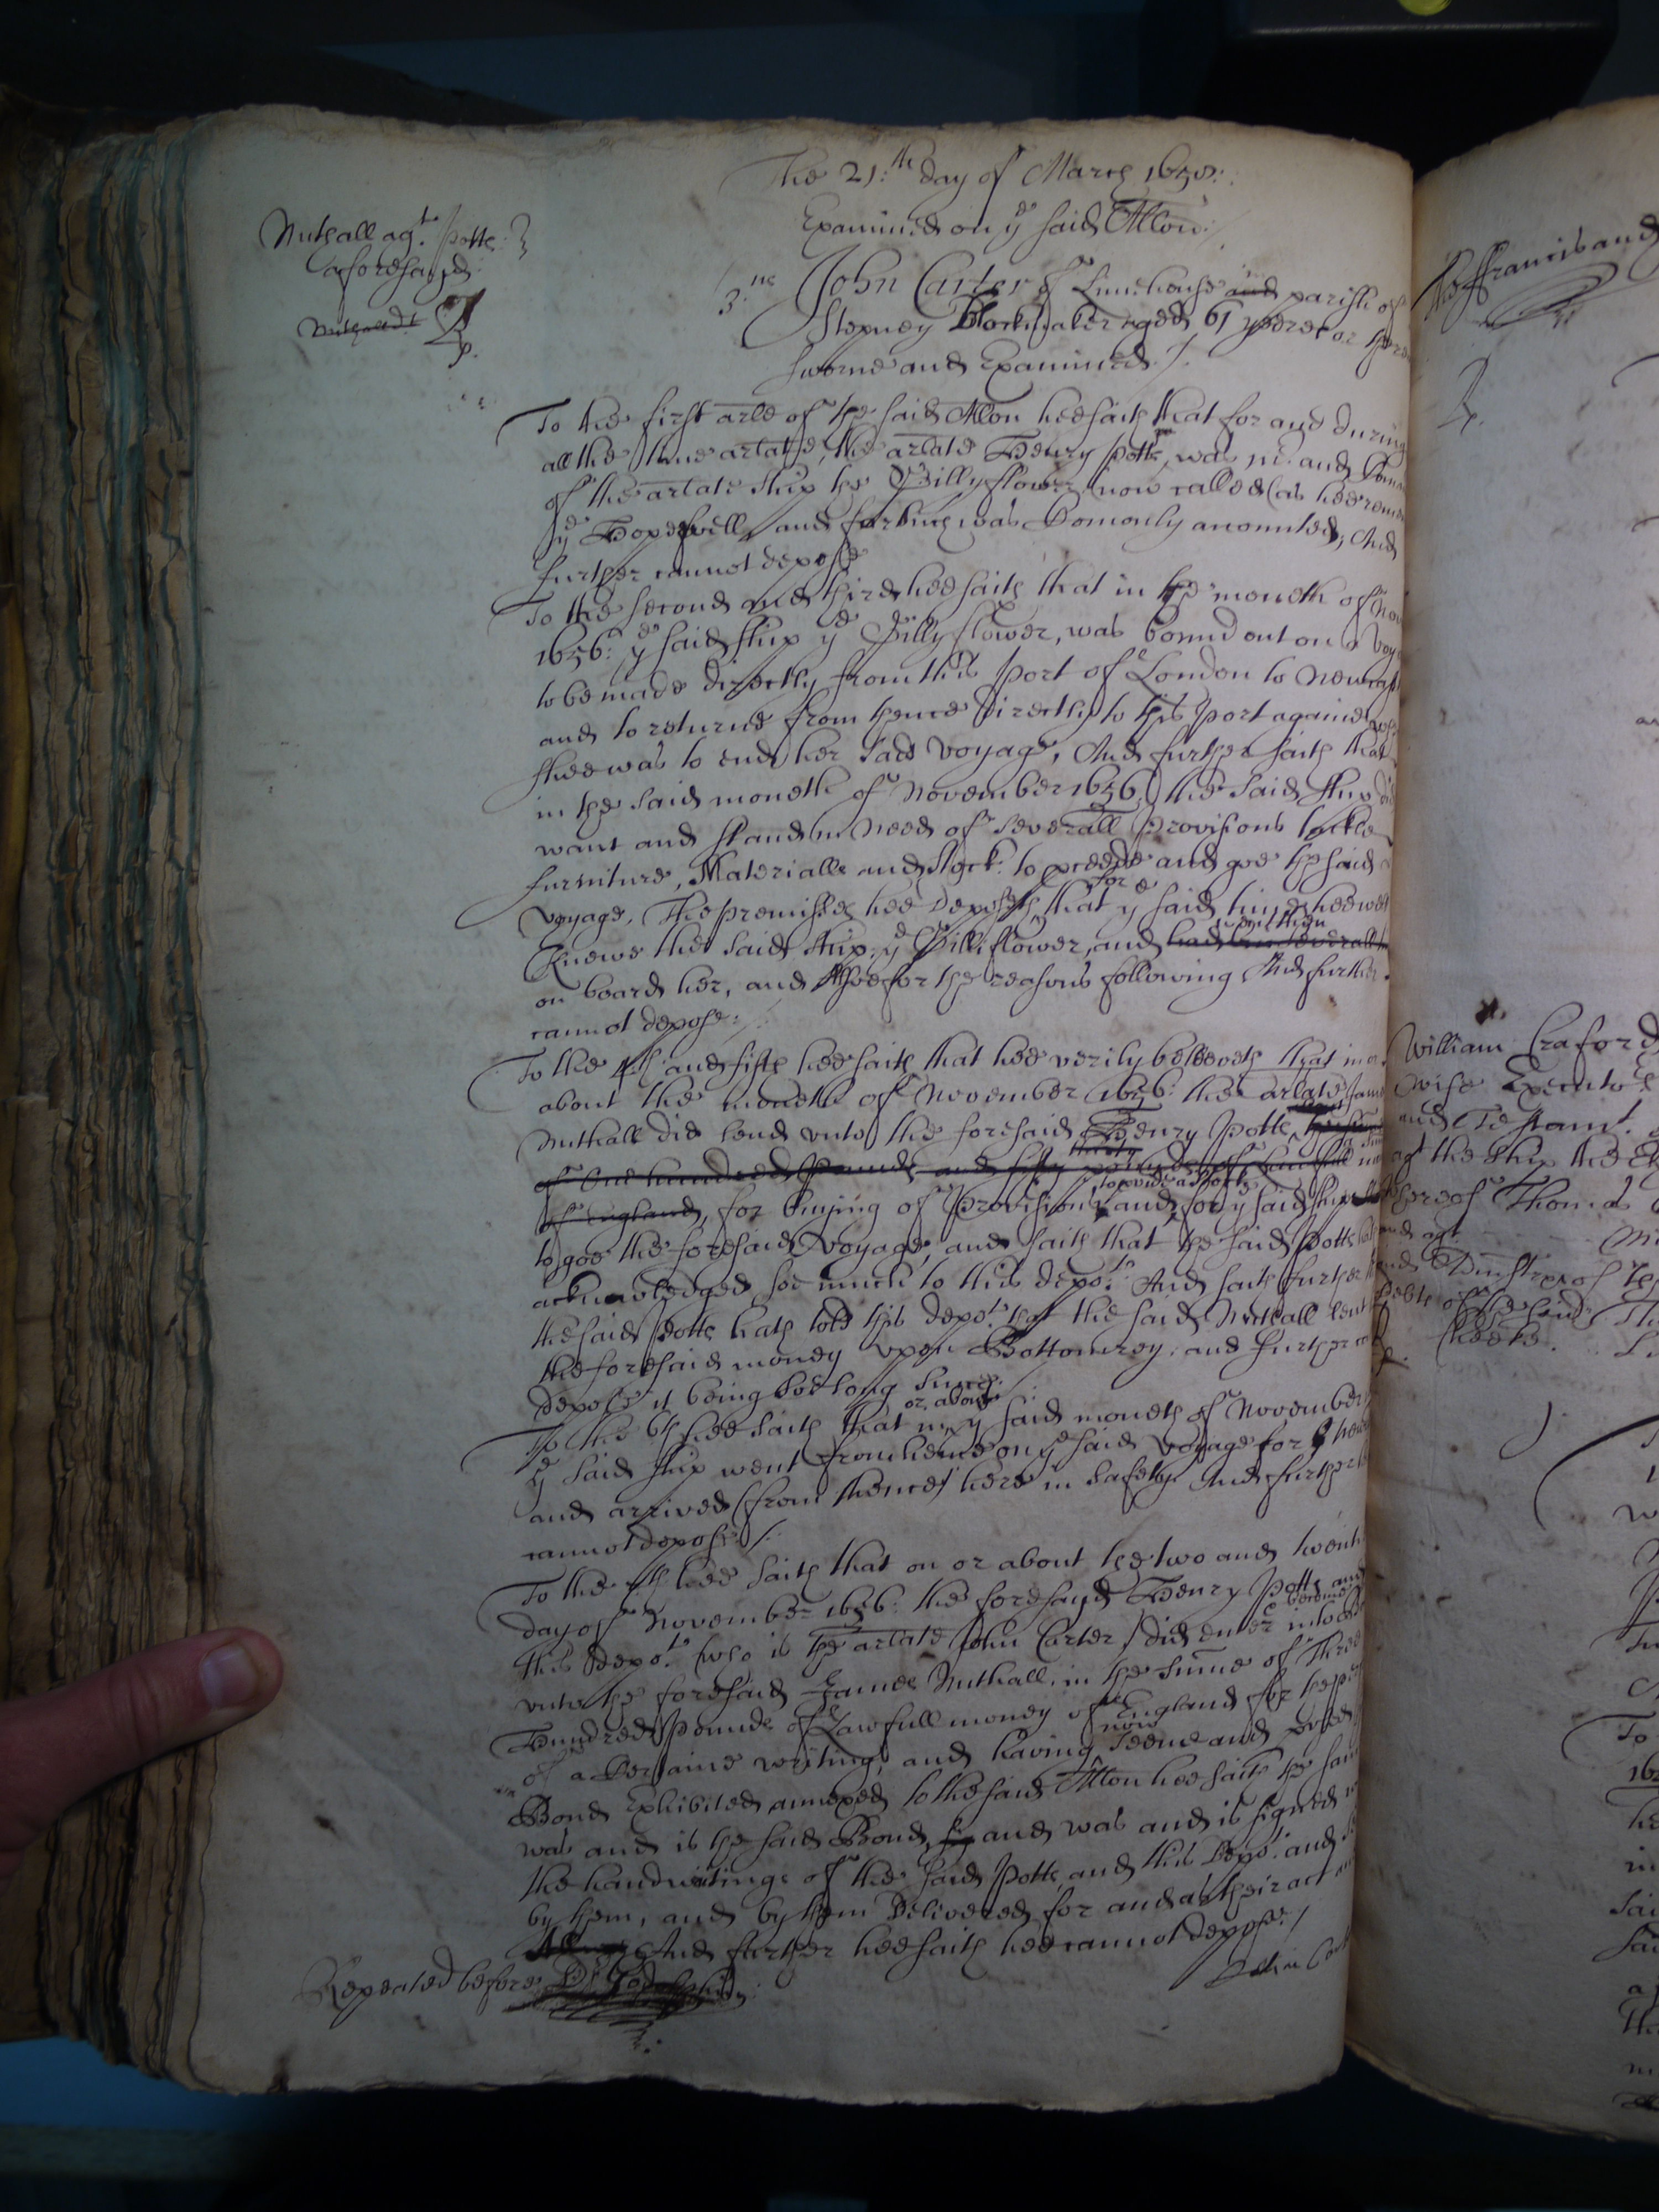 The 21:th day of March 1658:
Examined on ye said Allon:
Nuthall agt. Potts:
aforesayd:
3.us John Carter of Limehouse and parish of
Stepney Blockmaker aged 61 yeeres or there
sworne and Examined./.
To the first arle of the said Allon hee saith that for and during
all the time arlate, the arlate Henry Potts, was mr. and Coman
of the arlate ship the Gillyflower, now called (as hee reme
ye Hopewell, and for such was Comonly accounted, And
further cannot depose
To the second and third hee saith that in the moneth of Nov
1656: ye said ship ye Gillyflower, was bound out on a voya
to be made directly from this Port of London to Newcast
and to returne from thence directly to this Port againe, wh
shee was to end her said voyage, And further saith that
in the said moneth of November 1656, the said ship did
want and stand in need of severall Provisions tackle
furniture, Materialls and stock: to proceede and goe the said
voyage, The premisses hee deposeth, for that ye said time hee well
Knewe the said ship: ye Gilliflower, and had bin severall
on board her, and allsoe for the reasons following And further
cannot depose:
To the 4th and fifth hee saith that hee verily beleeveth that in or
about the moneth of November 1656: the arlate Jam
Nuthall did lend unto the foresaid Henry Potts,
of One hundred Pounds and fifty pounds of Lawfull
of England, for buying of Provisions, and for ye said ship
to goe the foresaid voyage, and saith that the said Potts hath
acknowledged soe much to this depot: And saith further
the said Potts hath told this depot. that the said Nuthall lent
the foresaid money upon Bottomrey, and further can
depose it being soe long since:
To the 6th hee saith that in or about ye said moneth of November
ye said ship went from hence on ye said voyage for New
and arrived (from thence) here in safety. And further
cannot depose /.
To the 7th hee saith that on or about the two and twenti
day of November 1656: the foresayd Henry Potts and
this depot. (who is the arlate John Carter) did enter into & become
unto the foresaid James Nuthall, in the sume of Three
Hundred Pounds of Lawfull money of England for the
of a Certaine writing, and having now seene and
Bond Exhibited annexed to the said Allon hee saith the same
was and is the said Bond, and was and is signed
the handwritinge of the said Potts and this Depot. and
by them, and by them Delivered for and as their act
And further hee saith hee cannot depose /
Repeated before Dr. Godolphin:
John Cart
Francis and
William Craford
wife Executo
and Testamt.
agt the ship the
thereof Thomas
and agt